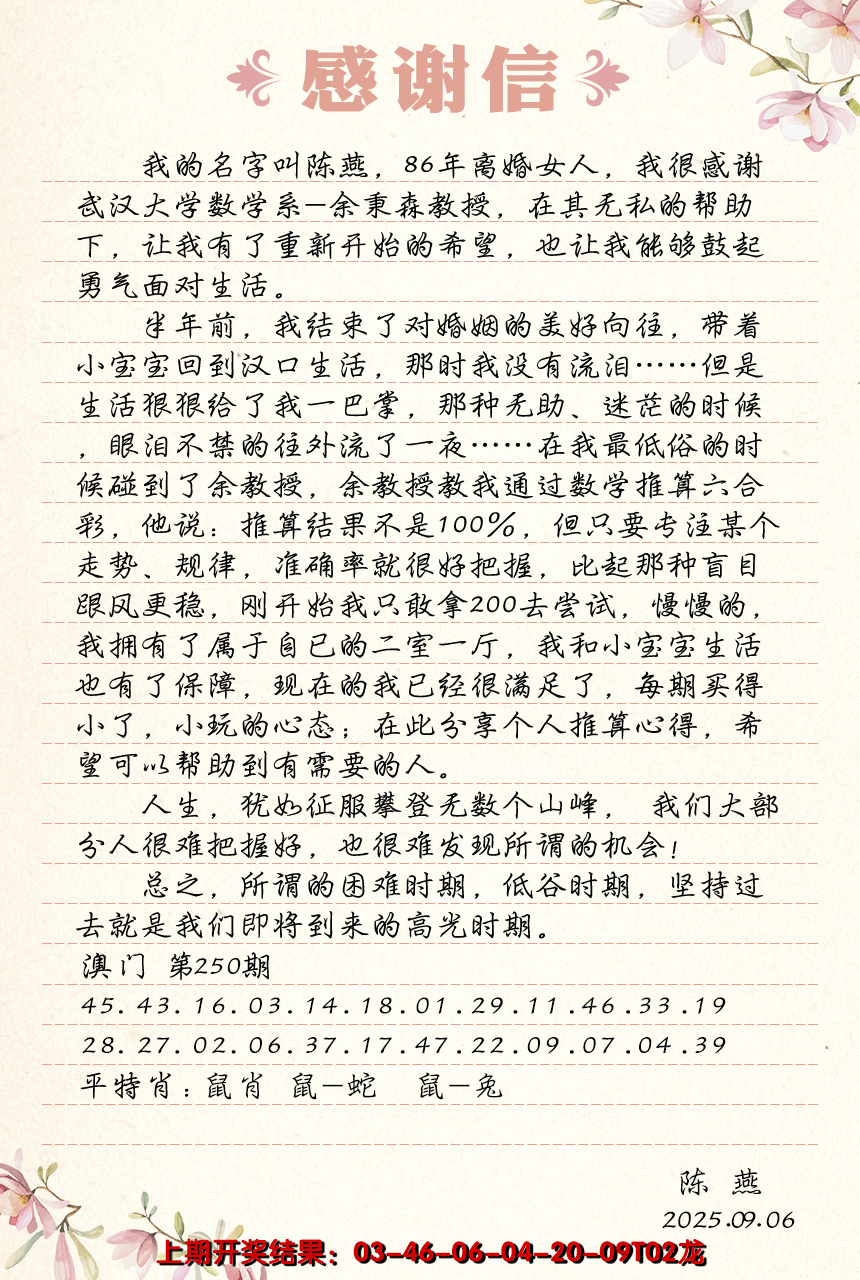 感谢信
我的名字叫陈燕，86年离婚女人，我很感谢
武汉大学数学系—余秉森教授，在其无私的帮助
下，让我有了重新开始的希望，也让我能够鼓起
勇气面对生活。
半年前，我结束了对婚姻的美好向往，带着
小宝宝回到汉口生活，那时我没有流泪……但是
生活狠狠给了我一巴掌，那种无助、迷茫的时候
，眼泪不禁的往外流了一夜……在我最低俗的时
候碰到了余教授，余教授教我通过数学推算六合
彩，他说：推算结果不是100%，但只要专注某个
走势、规律，准确率就很好把握，比起那种盲目
跟风更稳，刚开始我只敢拿200去尝试，慢慢的，
我拥有了属于自已的二室一厅，我和小宝宝生活
也有了保障，现在的我已经很满足了，每期买得
小了，小玩的心态；在此分享个人推算心得，希
望可以帮助到有需要的人。
人生，犹如征服攀登无数个山峰， 我们大部
分人很难把握好，也很难发现所谓的机会！
总之，所谓的困难时期，低谷时期，坚持过
去就是我们即将到来的高光时期。
澳门 第250期
45.43.16.03.14.18.01.29.11.46.33.19
28.27.02.06.37.17.47.22.09.07.04.39
平特肖：鼠肖 鼠—蛇 鼠—兔
陈 燕
2025.09.06
上期开奖结果：03-46-06-04-20-09T02龙